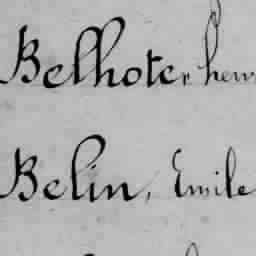 Belhote, hen
Belin, Emile